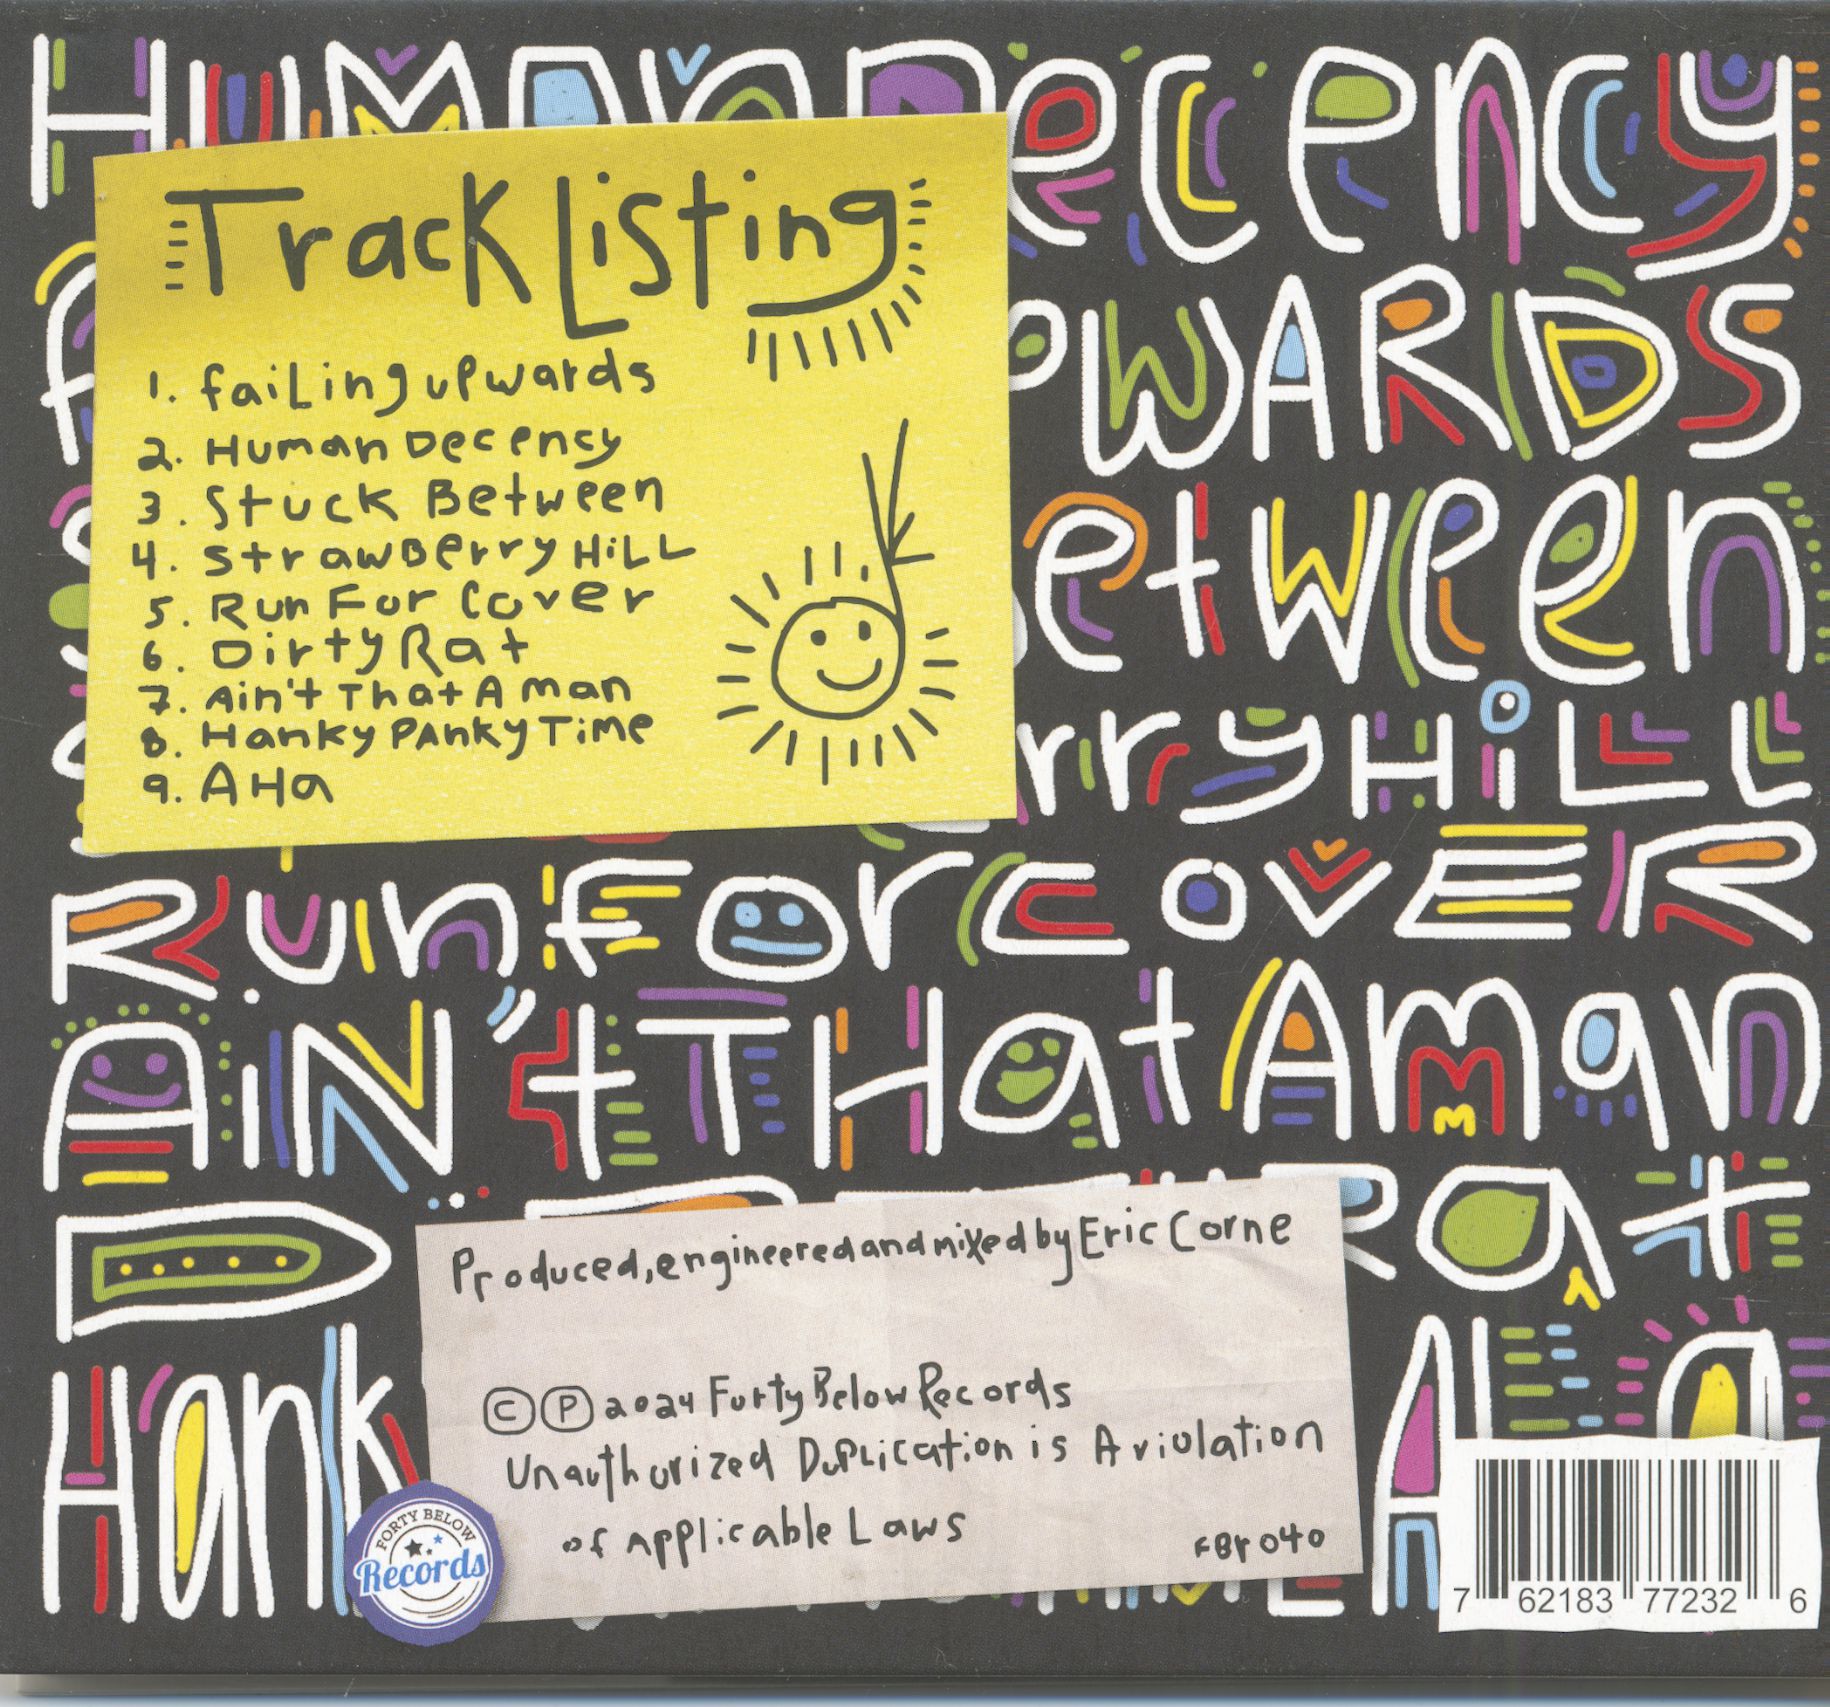 Human Decency
Track Listing
1. failing upwards
2. Human Decency
3. Stuck Between
4. Strawberry Hill
5. Run For Cover
6. Dirty Rat
7. Ain't That A man
8. Hanky PAnky Time
9. AHa
UPWARDS
Between
rry HiLL
Run for coVER
AiN't THat A man
Rat
Produced, engineered and mixed by Eric Corne
Hank
AHa
© ℗ 2024 Forty Below Records
Unauthorized Duplication is A violation
of Applicable Laws
FBr 040
FORTY BELOW
Records
7 62183 77232 6